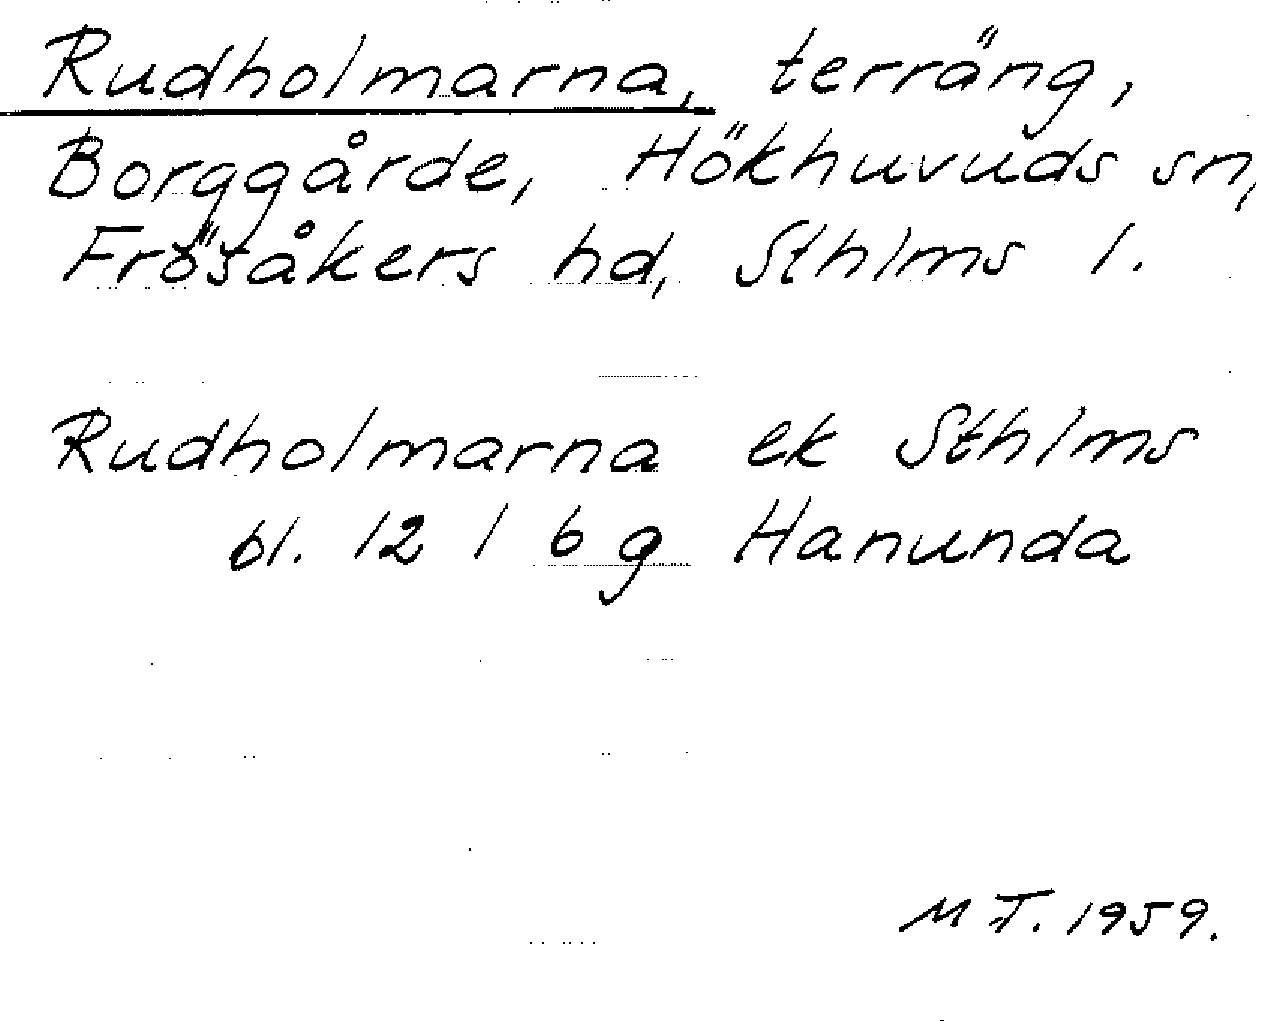 Rudholmarna, terräng,
Borggårde, Hökhuvuds sn,
Frösåkers hd, Sthlms l.
Rudholmarna ek Sthlms
bl. 12 I 6 g Hanunda
M T. 1959.